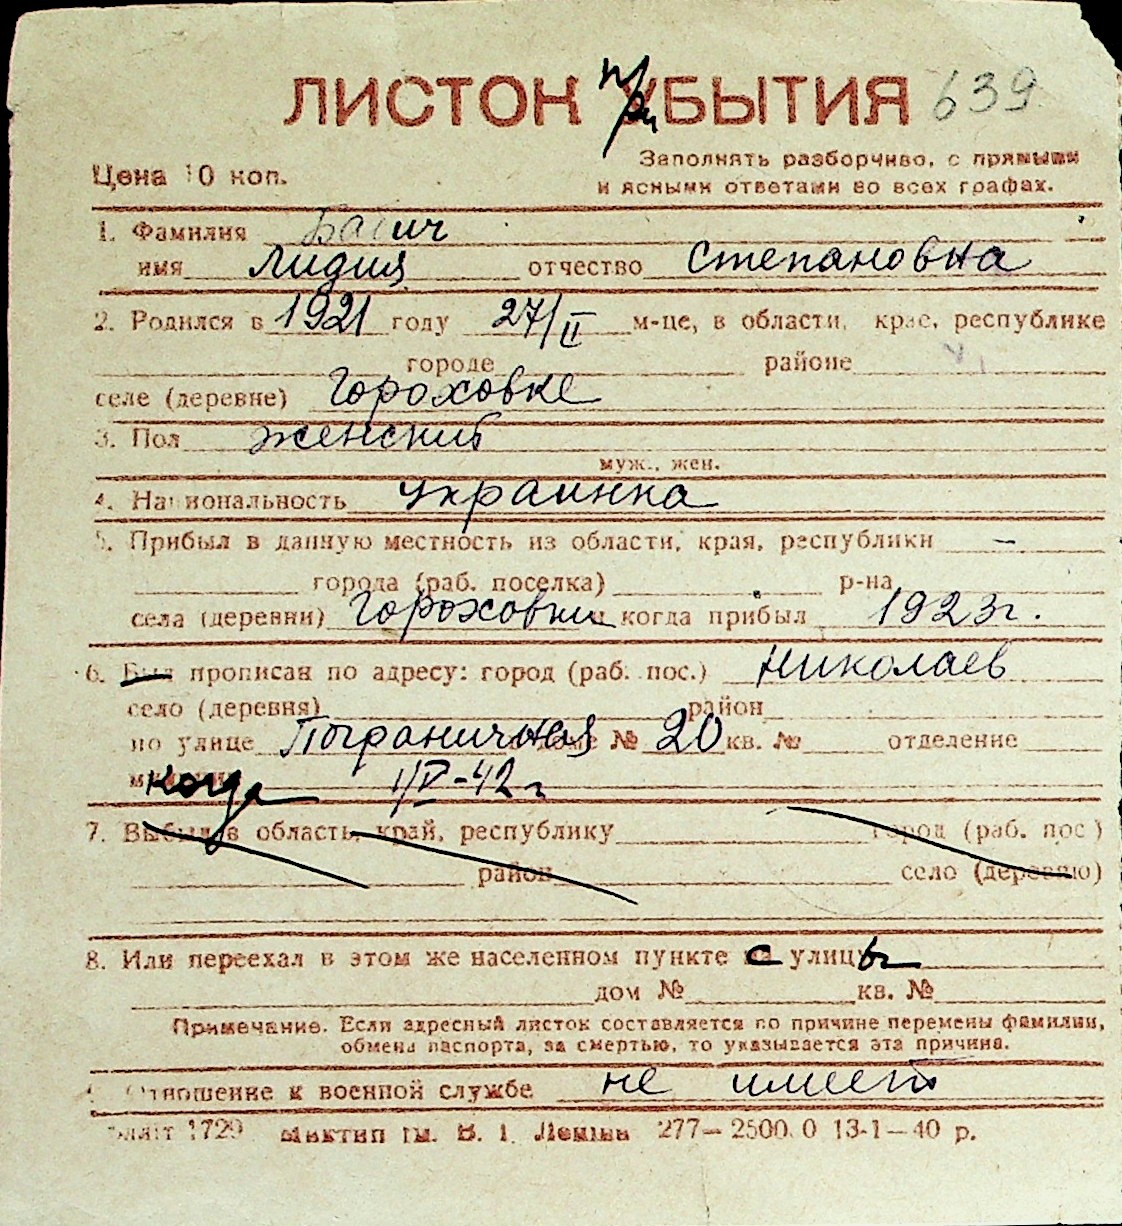 ЛИСТОК при БЫТИЯ 639
Цена 10 коп.
Заполнять разборчиво, с прямыми
и ясными ответами во всех графах.
1. Фамилия
имя Лидия отчество Степановна
2. Родился в 1921 году 27/II м-це, в области, крае, республике
городе районе
селе (деревне) Гороховке
3. Пол женский
муж., жен.
4. Национальность украинка
5. Прибыл в данную местность из области, края, республики –
города (раб. поселка) р-на
села (деревни) Гороховки когда прибыл 1923 г.
6. Был прописан по адресу: город (раб. пос.) Николаев
село (деревня) район
по улице Пограничная доме № 20 кв. № отделение
когда 1/V-42 г
7. Выбыл в область, край, республику город (раб. пос.)
район село (деревню)
8. Или переехал в этом же населенном пункте с улицы
дом № кв. №
Примечание. Если адресный листок составляется по причине перемены фамилии,
обмена паспорта, за смертью, то указывается эта причина.
Отношение к военной службе не имеет
1729 277–2500.0 13-1–40 р.